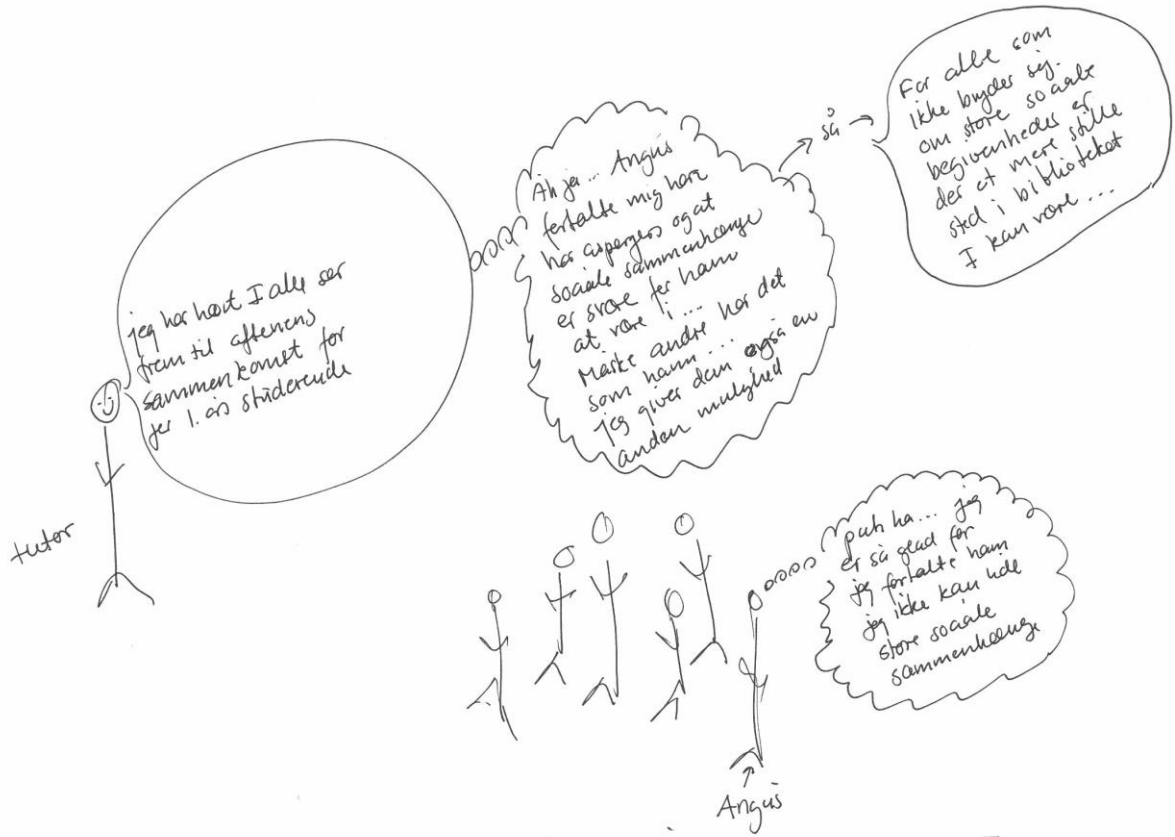 jeg har hørt I alle ser
frem til aftenens
sammenkomst for
jer 1. års studerende
tutor
Åh ja... Angus
fortalte mig han
har aspergers og at
sociale sammenhænge
er svære for ham
at være i...
Måske andre har det
som ham...
jeg giver dem også en
anden mulighed
så
For alle som
ikke bryder sig
om store sociale
begivenheder er
der et mere stille
sted i biblioteket
I kan være...
puh ha... jeg
er så glad for
jeg fortalte ham
jeg ikke kan lide
store sociale
sammenhænge
Angus